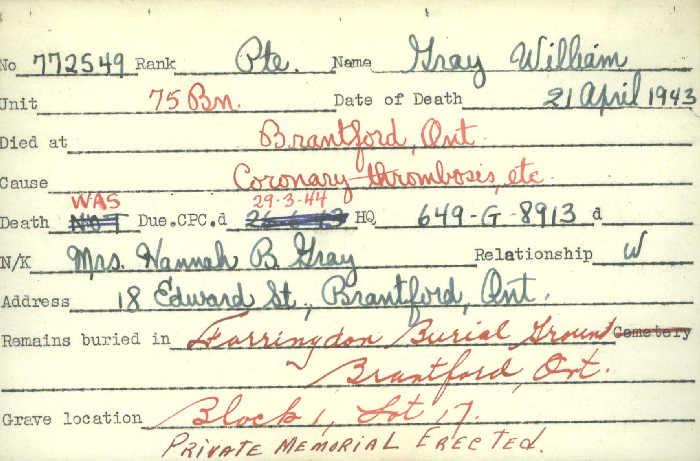 No 772549 Rank Pte. Name Gray William
Unit 75 Bn. Date of Death 21 April 1943
Died at Brantford, Ont.
Cause Coronary thrombosis, etc
WAS 29·3·44
Death NOT Due.CPC.d 26-6-43 HQ 649-G-8913 d
N/K Mrs. Hannah B. Gray Relationship W
Address 18 Edward St., Brantford, Ont.
Remains buried in Farringdon Burial Ground Cemetery
Brantford, Ont.
Grave location Block 1, Lot 17.
PRIVATE MEMORIAL ERECTED.